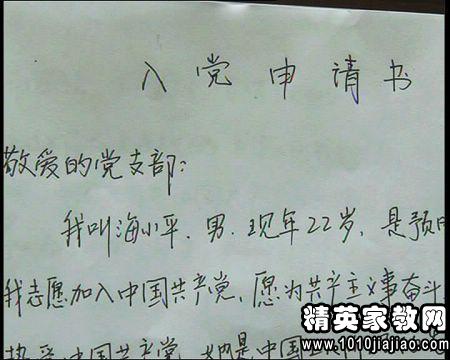 入党申请书
敬爱的党支部：
我叫海小平、男、现年22岁，是预
我志愿加入中国共产党、愿为共产主义事奋斗
热爱中国共产党
是中国
精英家教网
www.1010jiajiao.com